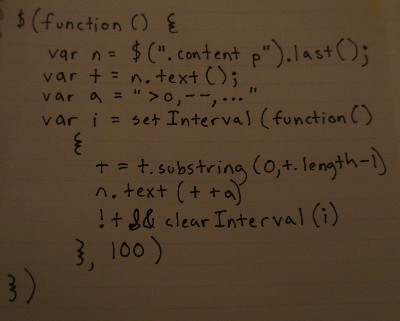 $(function () {
var n = $(".content p").last();
var t = n.text();
var a = ">o,--,..."
var i = setInterval(function()
{
t = t.substring(0,t.length-1)
n.text(t+a)
!t && clearInterval(i)
}, 100)
})